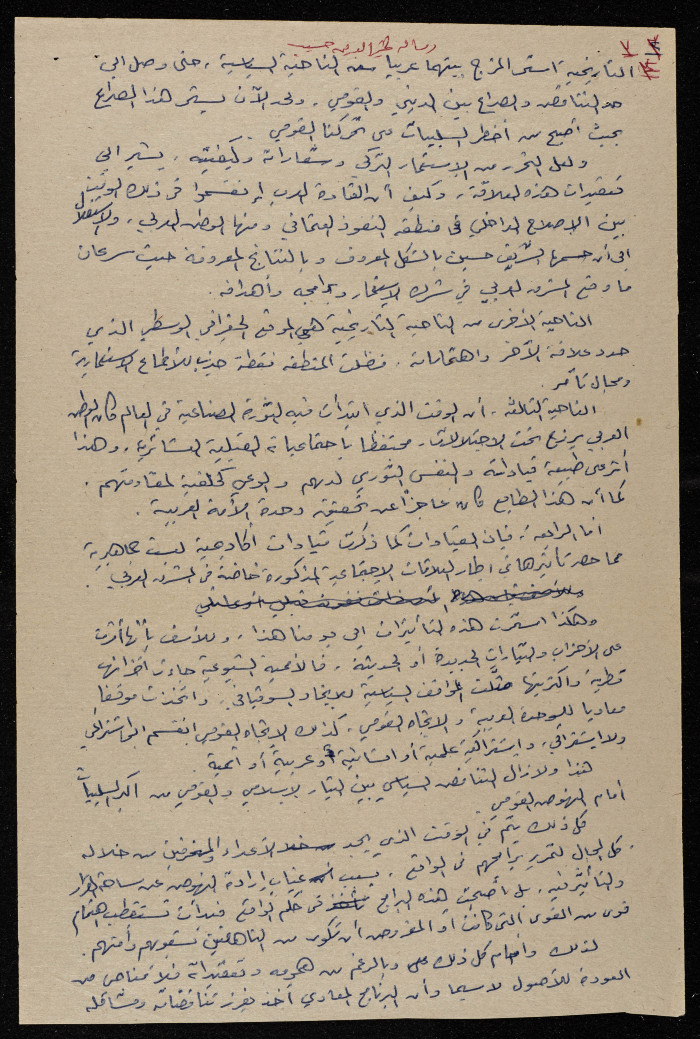 رسالة خير الدين حسيب
التاريخية استمر المزج بينهما عربيا من الناحية السياسية، حتى وصل الى
حد التناقض والصراع بين الديني والقومي. ولحد الآن يستمر هذا الصراع
بحيث أصبح من أخطر السلبيات في تحركنا القومي.
ولعل التحرر من الاستعمار التركي وشعاراته وكيفيته، يشير الى
تعقيدات هذه العلاقة، وكيف أن القادة العرب انقسموا في ذلك الوقت
بين الإصلاح الداخلي في منطقة النفوذ العثماني ومنها الوطن العربي، والاستقلال
الى أن حسمها الشريف حسين بالشكل المعروف وبالنتائج المعروفة حيث سرعان
ما وقع المشرق العربي في شرك الاستعمار وبرامجه وأهدافه.
الناحية الأخرى من الناحية التاريخية هي الموقع الجغرافي الوسطي الذي
حدد علاقة الآخر واهتماماته. فظلت المنطقة نقطة جذب للأطماع الاستعمارية
ومجال تآمر.
الناحية الثالثة، أن الوقت الذي ابتدأت فيه الثورة الصناعية في العالم كان الوطن
العربي يرزح تحت الاحتلالات، محتفظا باجتماعياته القبلية العشائرية، وهذا
أثر على طبيعة قياداته والنفس الثوري لديهم والوعي كخلفية لمقاومتهم.
كما أن هذا الطابع كان عاجزاً عن تحقيق وحدة الأمة العربية.
أما الرابعة، فإن القيادات كما ذكرت قيادات أكاديمية ليست جماهيرية
مما حصر تأثيرها في اطار العلاقات الاجتماعية المذكورة خاصة في المشرق العربي
وهكذا استمرت هذه التأثيرات الى يومنا هذا، وللأسف بأنها أثرت
على الأحزاب والتيارات الجديدة أو الحديثة. فالأممية الشيوعية جاءت أحزابها
قطرية وأكثريتها مثلت المواقف السياسية للاتحاد السوفياتي. واتخذت موقفا
معاديا للوحدة العربية والاتجاه القومي، كذلك الاتجاه القومي انقسم الى اشتراكي
ولا اشتراكي، واشتراكية علمية أو انسانية أو عربية أو أممية.
هذا ولا زال التناقض السياسي بين التيار الإسلامي والقومي من أكبر السلبيات
أمام النهوض القومي.
كل ذلك يتم في الوقت الذي يجد الأعداء والمنحرفين من خلاله
كل المجال لتمرير برامجهم في الواقع. بسبب غياب إرادة النهوض عن ساحة القرار
والتأثير فيه. بل أصبحت هذه البرامج في حكم الواقع فبدأت تستقطب اهتمام
قوى من القوى التي كانت أو المفروض أن تكون من الناهضين بشعوبهم وأمتهم.
لذلك وأمام كل ذلك وبالرغم من همومه وتعقيداته فلا مناص من
العودة للأصول لا سيما وأن البرنامج المعادي أخذ يفرز تناقضاته ومشاكله